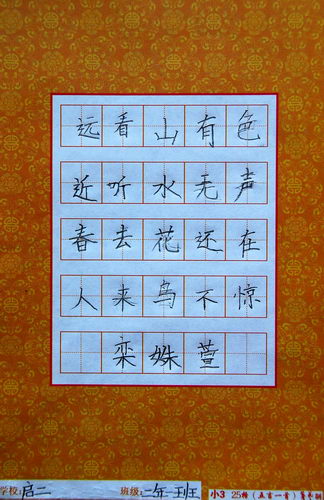 远看山有色
近听水无声
春去花还在
人来鸟不惊
栾姝萱
学校:启二 班级:二年一班 小3 25格(五言一首)